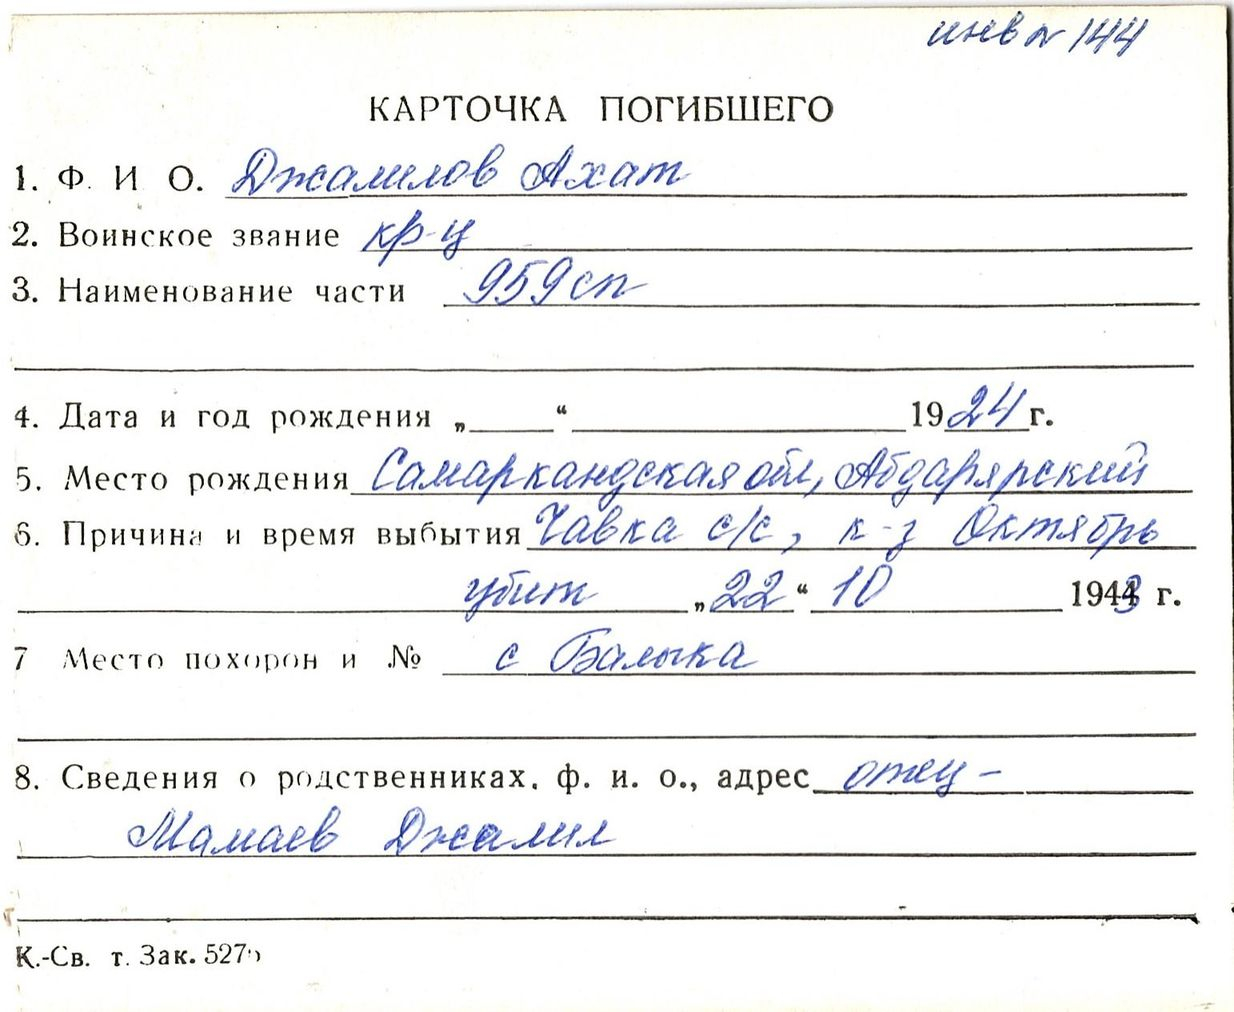 инв № 144
КАРТОЧКА ПОГИБШЕГО
1. Ф. И О. Джамилов Ахат
2. Воинское звание кр-ц
3. Наименование части 959 сп
4. Дата и год рождения „ “ 1924 г.
5. Место рождения Самаркандская обл, Абдарярский
6. Причина и время выбытия Чавка с/с, к-з Октябрь
убит „22“ 10 1943 г.
7 Место похорон и № с Балыка
8. Сведения о родственниках, ф. и. о., адрес отец -
Мамаев Джалил
К.-Св. т. Зак. 5275